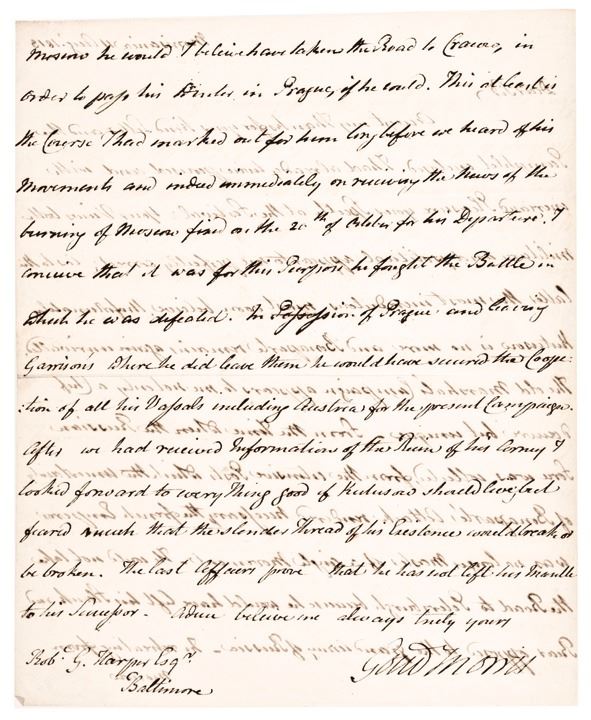 Moscow he would I believe have taken the Road to Cracow, in
order to pass his Winter in Prague, if he could. This at least is
the Course I had marked out for him long before we heard of his
Movements and indeed immediately on receiving the News of the
burning of Moscow fixed on the 20th of October for his Departure. I
conceive that it was for this Purpose he fought the Battle in
which he was defeated. In Possession of Prague and leaving
Garrisons where he did leave them he would have secured the Coope-
:tion of all his Vassals including Austria for the present Campaign.
After we had received Informations of the Ruin of his Army I
looked forward to every Thing good if Kutusow should live, but
feared much that the slender Thread of his Existence would break or
be broken. The last Affairs prove that he has not left his Mantle
to his Successor. Adieu believe me always truly yours
Robt. G. Harper Esqr. Gouv Morris
Baltimore